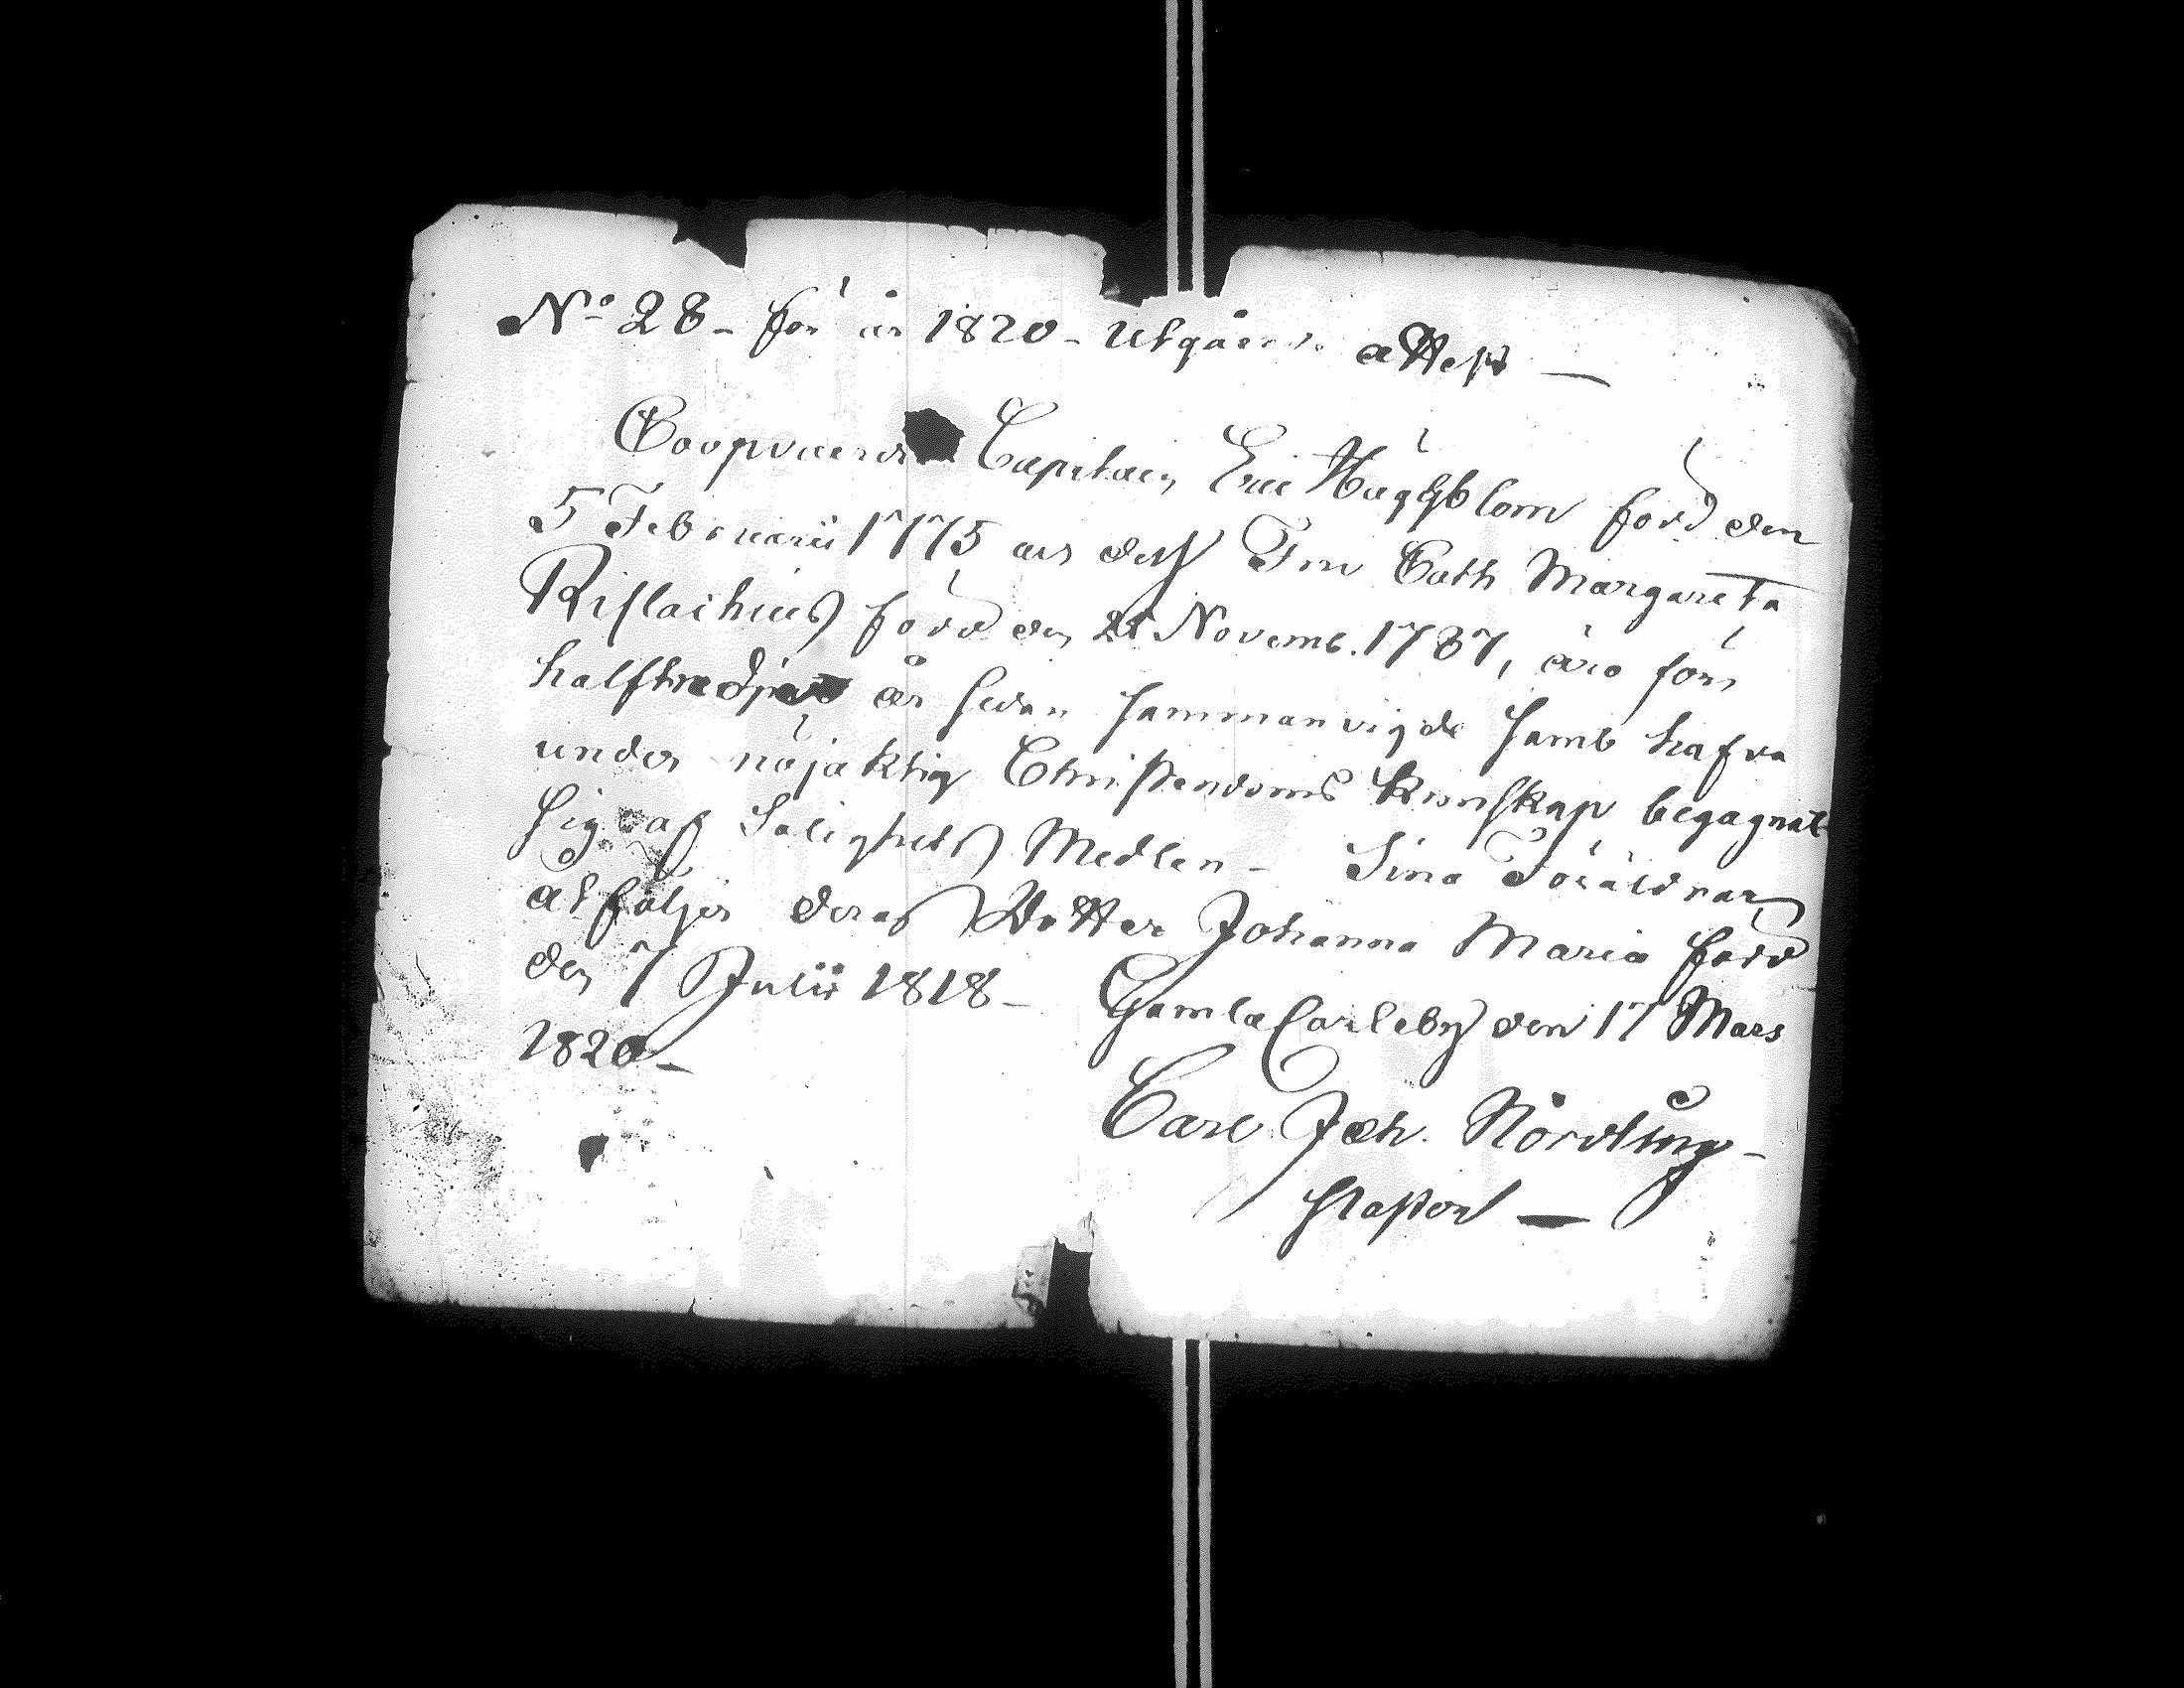 No 28 - för år 1820 - Utgående attest —
Coopvaerdi Capitain Eric Häggblom född den
5 Februarii 1775 ars dess Fru Cath Margareta
Rislachius född den 21 Novemb. 1787, äro för
halftredje år sedan sammanvigde samt hafva
under nöjaktig Christendoms kunskap begagnat
sig af Salighets Medlen - Sina Föräldrar
åtföljer deras Dotter Johanna Maria född
den 7 Julii 1818 - Gamla Carleby den 17 Mars
1820 -
Carl Joh. Nördling -
Pastor —